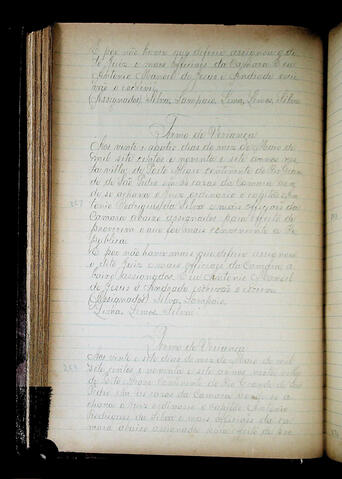 E por não haver que deferir assignou o di
to Juiz e mais officiaes da Camara E eu
Antonio Manoel de Jesus e Andrade escri
vão o escrevi
(Assignados) Silva, Sampaio, Lima, Lemos, Silva
Termo de Veriança
Aos vinte e quatro dias do mez de Maio de
mil sete centos e noventa e sete annos nes
ta villa de Porto Alegre continente do Rio Gran
de de São Pedro em as casas da Camara don
de se achava o Juiz ordinario o capitão An
tonio Rodrigues da Silva e mais officiaes da
Camara abaixo assignados para effeito de
proverem o que for mais conveniente a Re
publica
E por não haver mais que deferir assignou
o dito Juiz e mais officiaes da Camara a
baixo assignados E eu Antonio Manoel
de Jesus e Andrade escrivão o escrevi
(Assignados) Silva, Sampaio,
Lima, Lemos, Silva
Termo de Veriança
Aos vinte e sete dias do mez de Maio de mil
sete centos e noventa e sete annos nesta villa
de Porto Alegre Continente do Rio Grande de São
Pedro em as casas da Camara donde se a
chava o Juiz ordinario o Capitão Antonio
Rodrigues da Silva e mais officiaes da Ca
mara abaixo assignados para effeito de pro